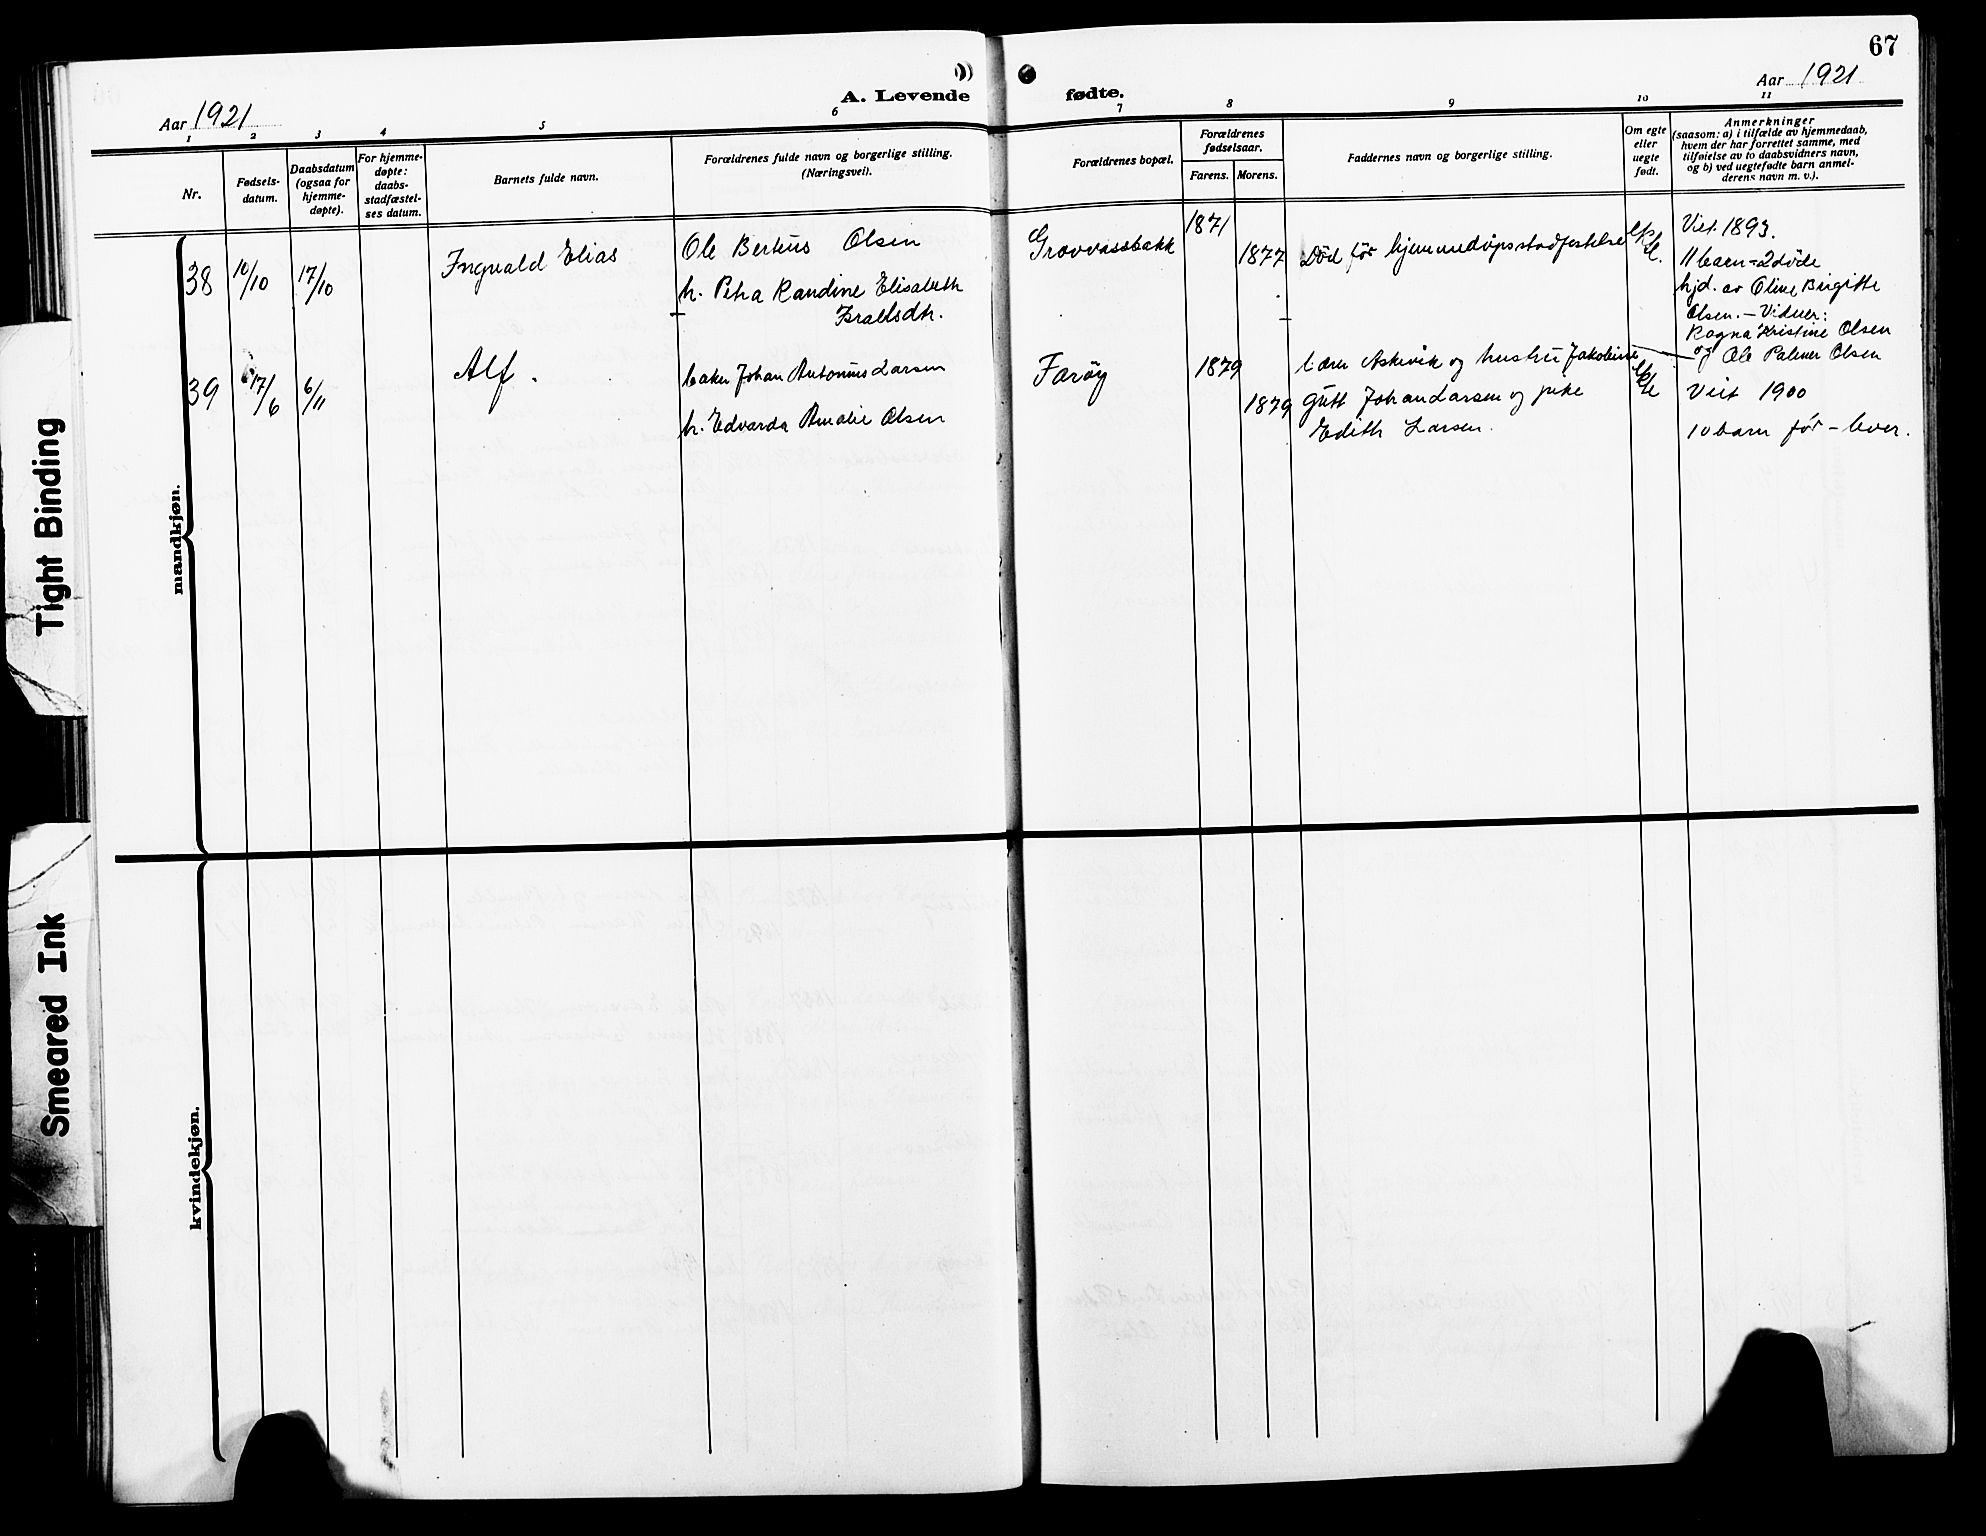 67
Aar 1921
A. Levende
fødte.
Aar 1921
1 2 3 4 5 6 7 8 9 10 11
Nr.
Fødsels-
datum.
Daabsdatum
(ogsaa for
hjemme-
døpte).
For hjemme-
døpte:
daabs-
stadfæstel-
ses datum.
Barnets fulde navn.
Forældrenes fulde navn og borgerlige stilling.
(Næringsvei).
Forældrenes bopæl.
Forældrenes
fødselsaar.
Farens. Morens.
Faddernes navn og borgerlige stilling.
Om egte
eller
uegte
født.
Anmerkninger
(saasom: a) i tilfælde av hjemmedaab,
hvem der har forrettet samme, med
tilføielse av to daabsvidners navn,
og b) ved uegtefødte barn anmel-
derens navn m. v.).
mandkjøn.
38
10/10
17/10
Ingvald Elias
Ole Berteus Olsen
h. Petra Randine Elisabeth
Israelsdtr.
Grovvassbakk
1871
1877
Død før hjemmedøpsstadfestelse
ekte.
Viet 1893.
11 barn - 2 døde
hjd. av Oline Birgitte
Olsen. - Vidner:
Ragna Kristine Olsen
og Ole Palmer Olsen
39
17/6
6/11
Alf.
baker Johan Antonius Larsen
h. Edvarda Amalie Olsen
Farøy
1879
1879
lærer Askevik og hustru Jakobine
gutt Johan Larsen og pike
Edith Larsen.
ekte
Viet 1900
10 barn før - lever.
kvindekjøn.
Tight Binding
Smeared Ink